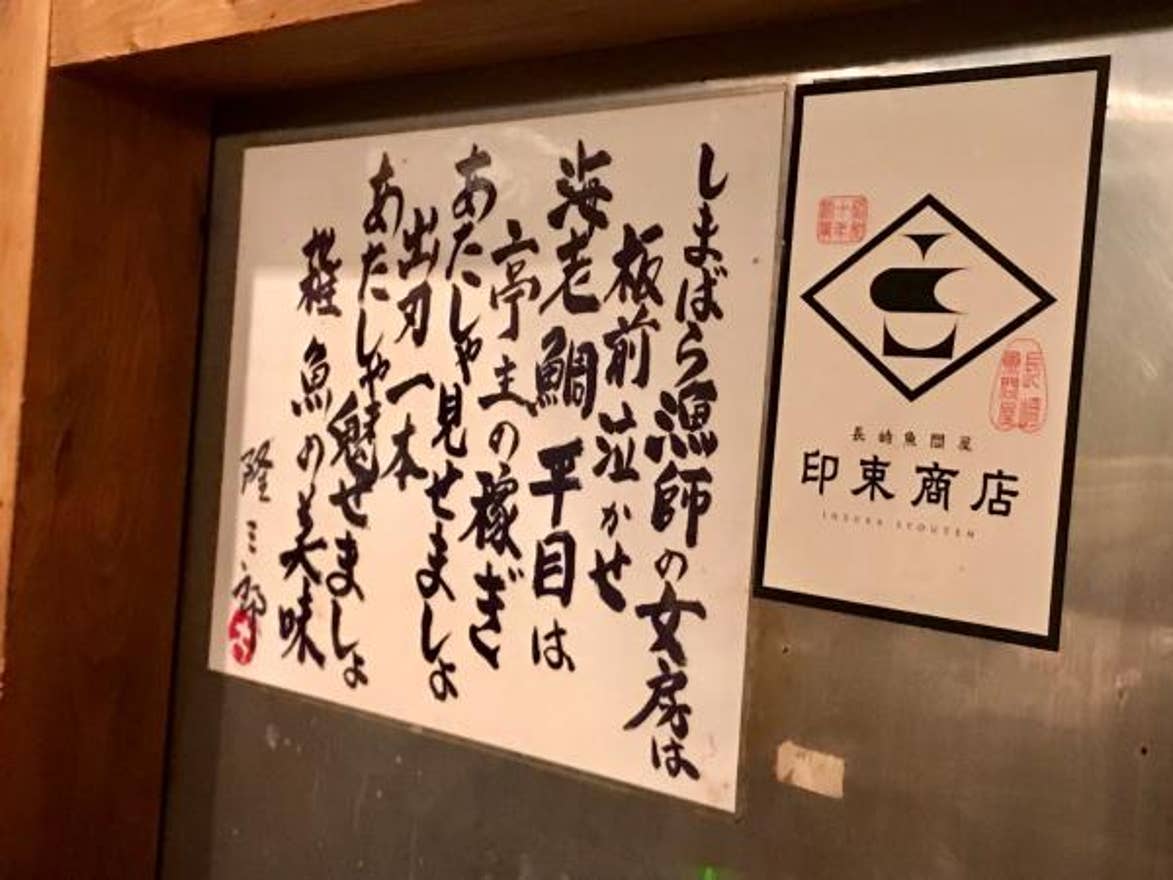 しまばら漁師の女房は
板前泣かせ
海老鯛平目は
亭主の稼ぎ
あたしゃ見せましょ
出刃一本
あたしゃ魅せましょ
雑魚の美味
隆三郎
長崎魚問屋
長崎魚問屋
印束商店